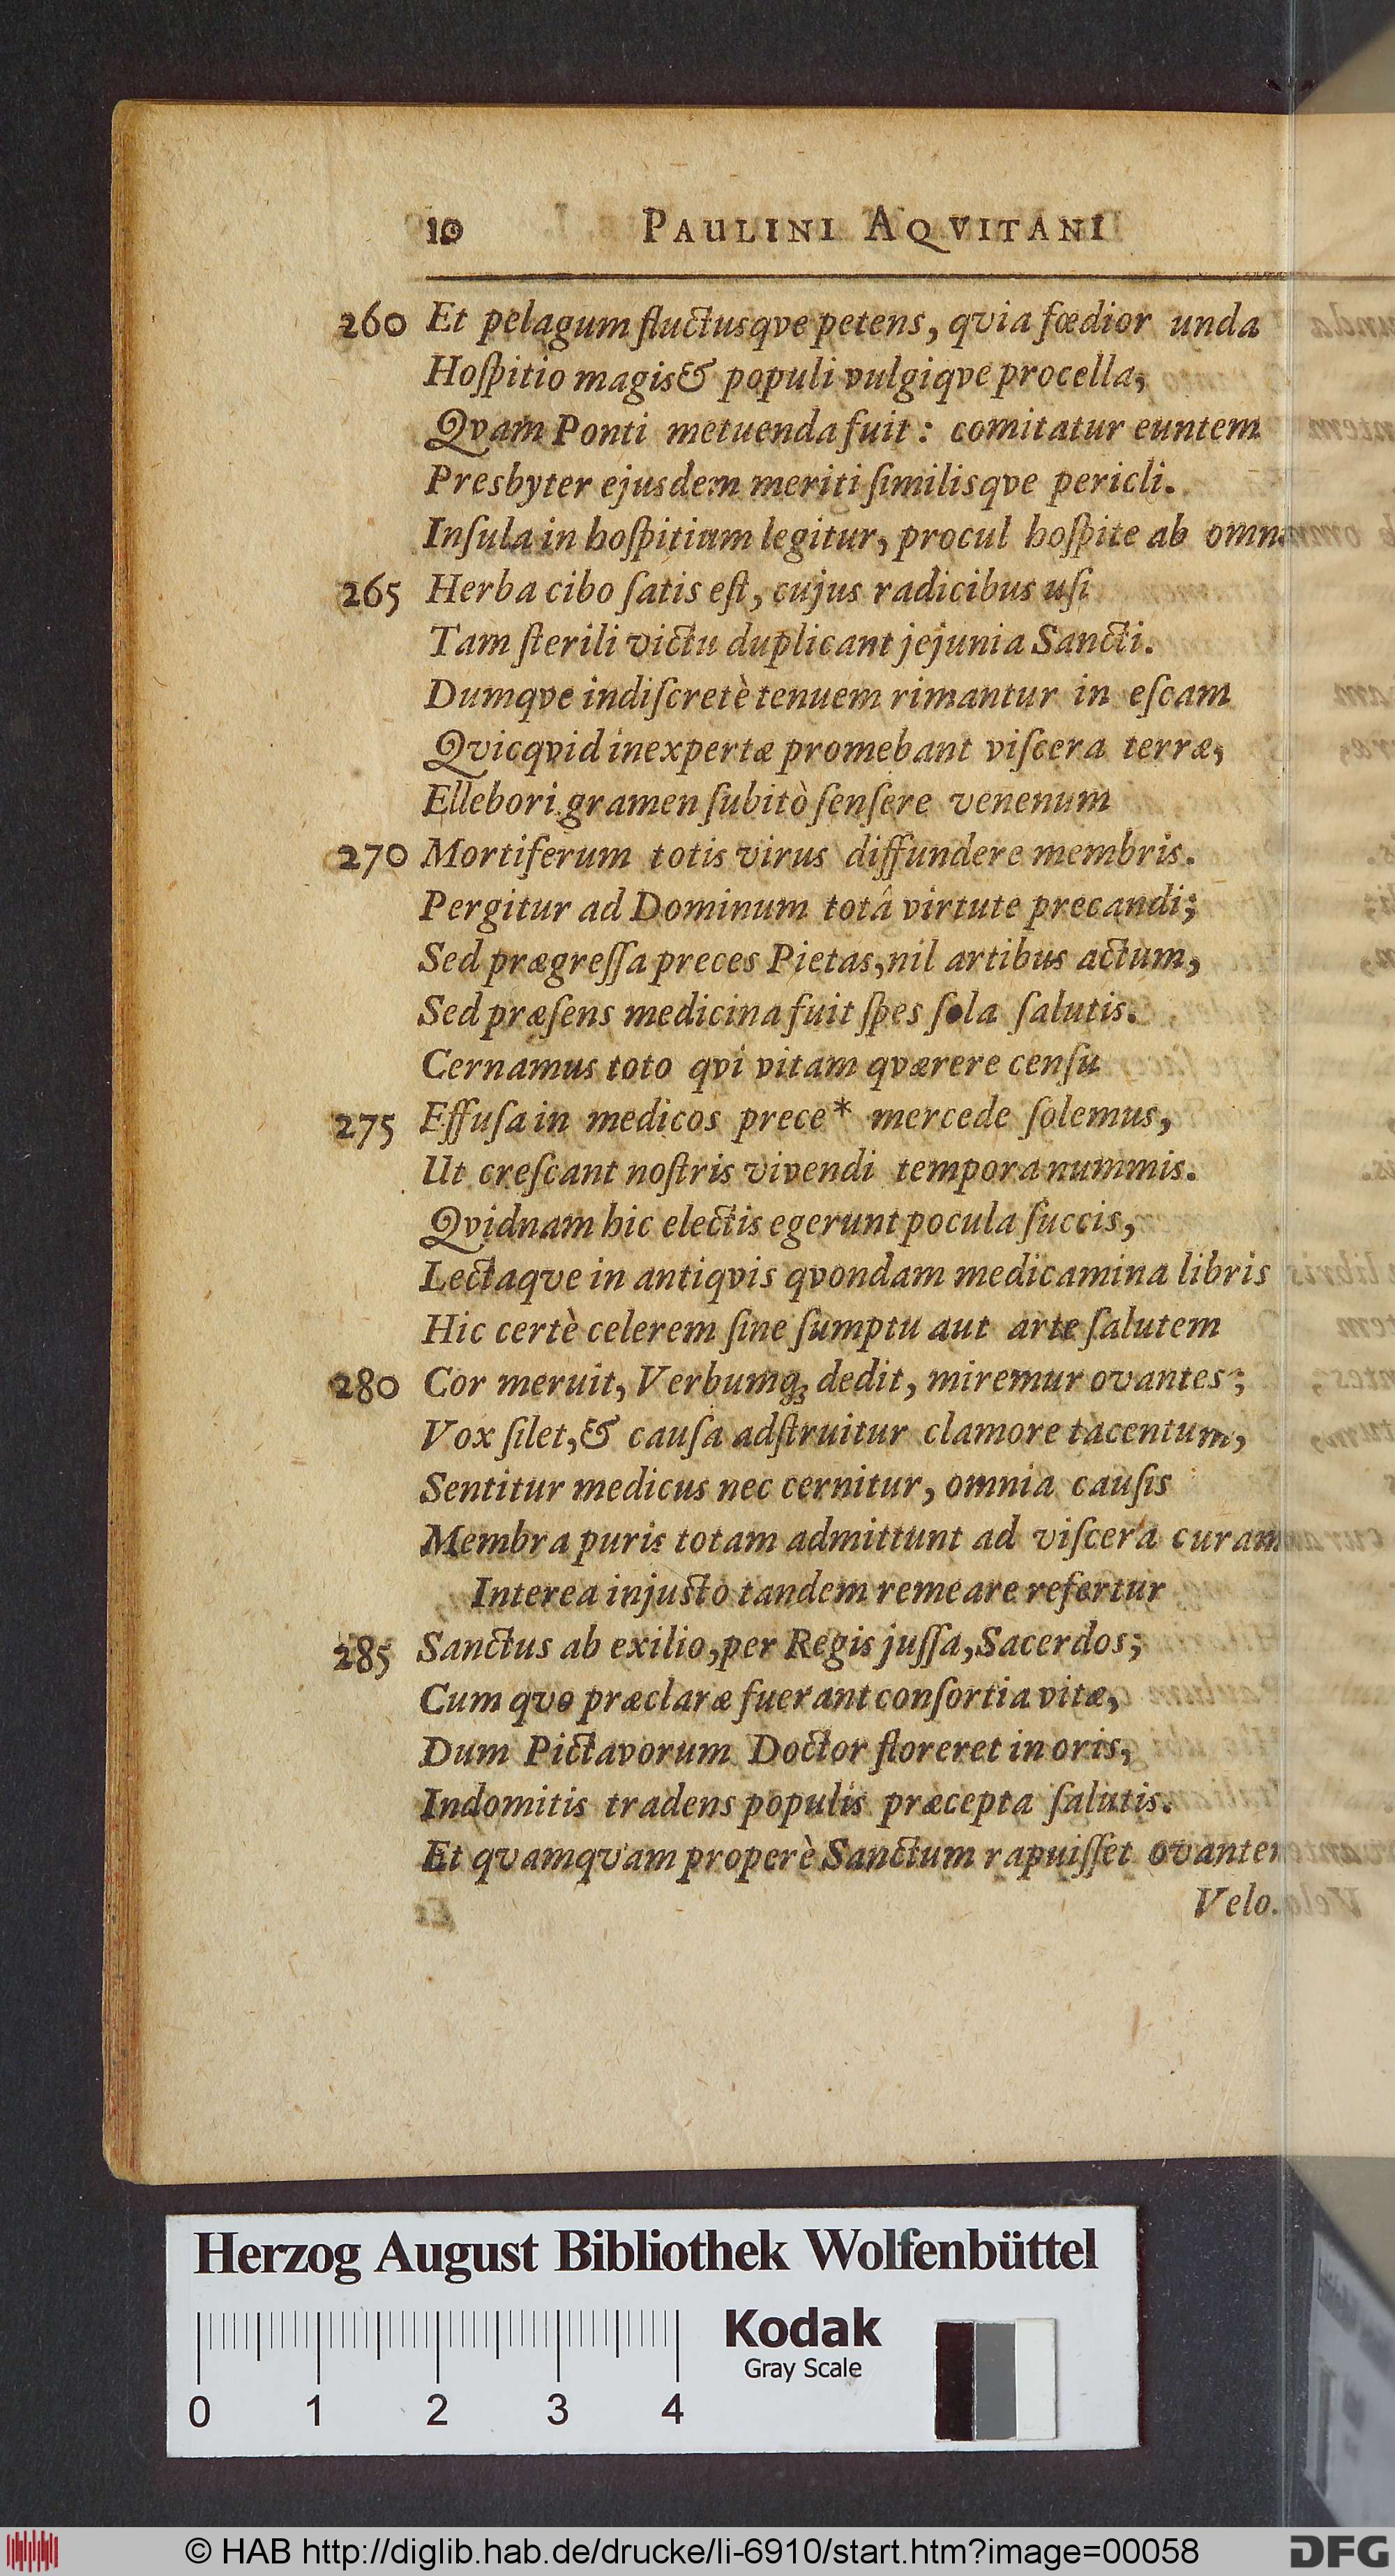 10 PAULINI AQVITANI
260 Et pelagum fluctusqve petens, qvia fœdior unda
Hoſpitio magis & populi vulgiqve procella,
Qvam Ponti metuenda fuit: comitatur euntem
Presbyter ejusdem meriti ſimilisqve pericli.
Inſula in hoſpitium legitur, procul hoſpite ab
265 Herba cibo ſatis eſt, cujus radicibus uſi
Tam ſterili victu duplicant jejunia Sancti.
Dumqve indiſcretè tenuem rimantur in eſcam
Qvicqvid inexpertæ promebant viſcera terræ,
Ellebori gramen ſubitò ſenſere venenum
270 Mortiferum totis virus diffundere membris.
Pergitur ad Dominum totâ virtute precandi;
Sed prægreſſa preces Pietas, nil artibus actum,
Sed præſens medicina fuit ſpes ſola ſalutis.
Cernamus toto qvi vitam qværere cenſu
275 Effuſa in medicos prece* mercede ſolemus,
Ut creſcant noſtris vivendi tempora nummis.
Qvidnam hic electis egerunt pocula ſuccis,
Lectaqve in antiqvis qvondam medicamina libris
Hic certè celerem ſine ſumptu aut arte ſalutem
280 Cor meruit, Verbumq; dedit, miremur ovantes;
Vox ſilet, & cauſa adſtruitur clamore tacentum,
Sentitur medicus nec cernitur, omnia cauſis
Membra puris totam admittunt ad viſcera curam
Interea injusto tandem remeare refertur
285 Sanctus ab exilio, per Regis juſſa, Sacerdos;
Cum qvo præclaræ fuerant conſortia vitæ,
Dum Pictavorum Doctor floreret in oris,
Indomitis tradens populis præcepta ſalutis.
Et qvamqvam properè Sanctum rapuiſſet
Velo.
Herzog August Bibliothek Wolfenbüttel
Kodak
Gray Scale
0 1 2 3 4
© HAB http://diglib.hab.de/drucke/li-6910/start.htm?image=00058
DFG